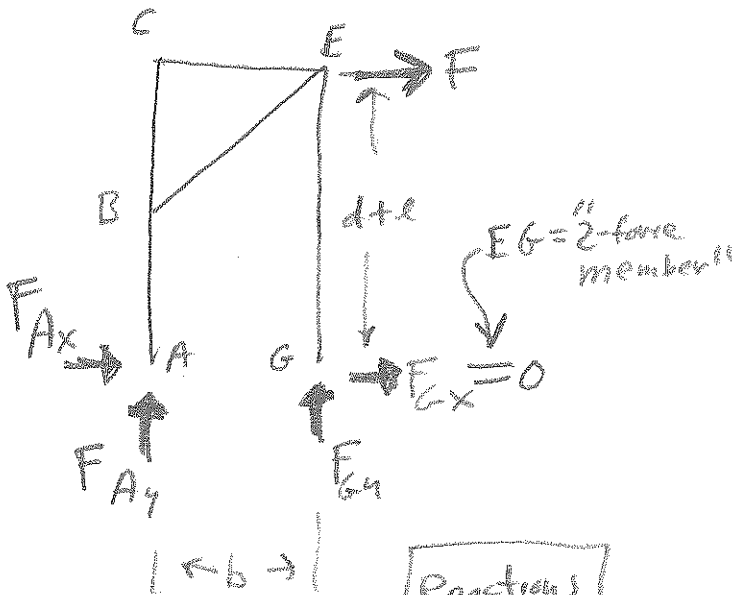 C
E
F
B
d+l
EG = "2-force
member"
F_Ax
A
G
F_Gx = 0
F_Ay
F_Gy
b
Reactions